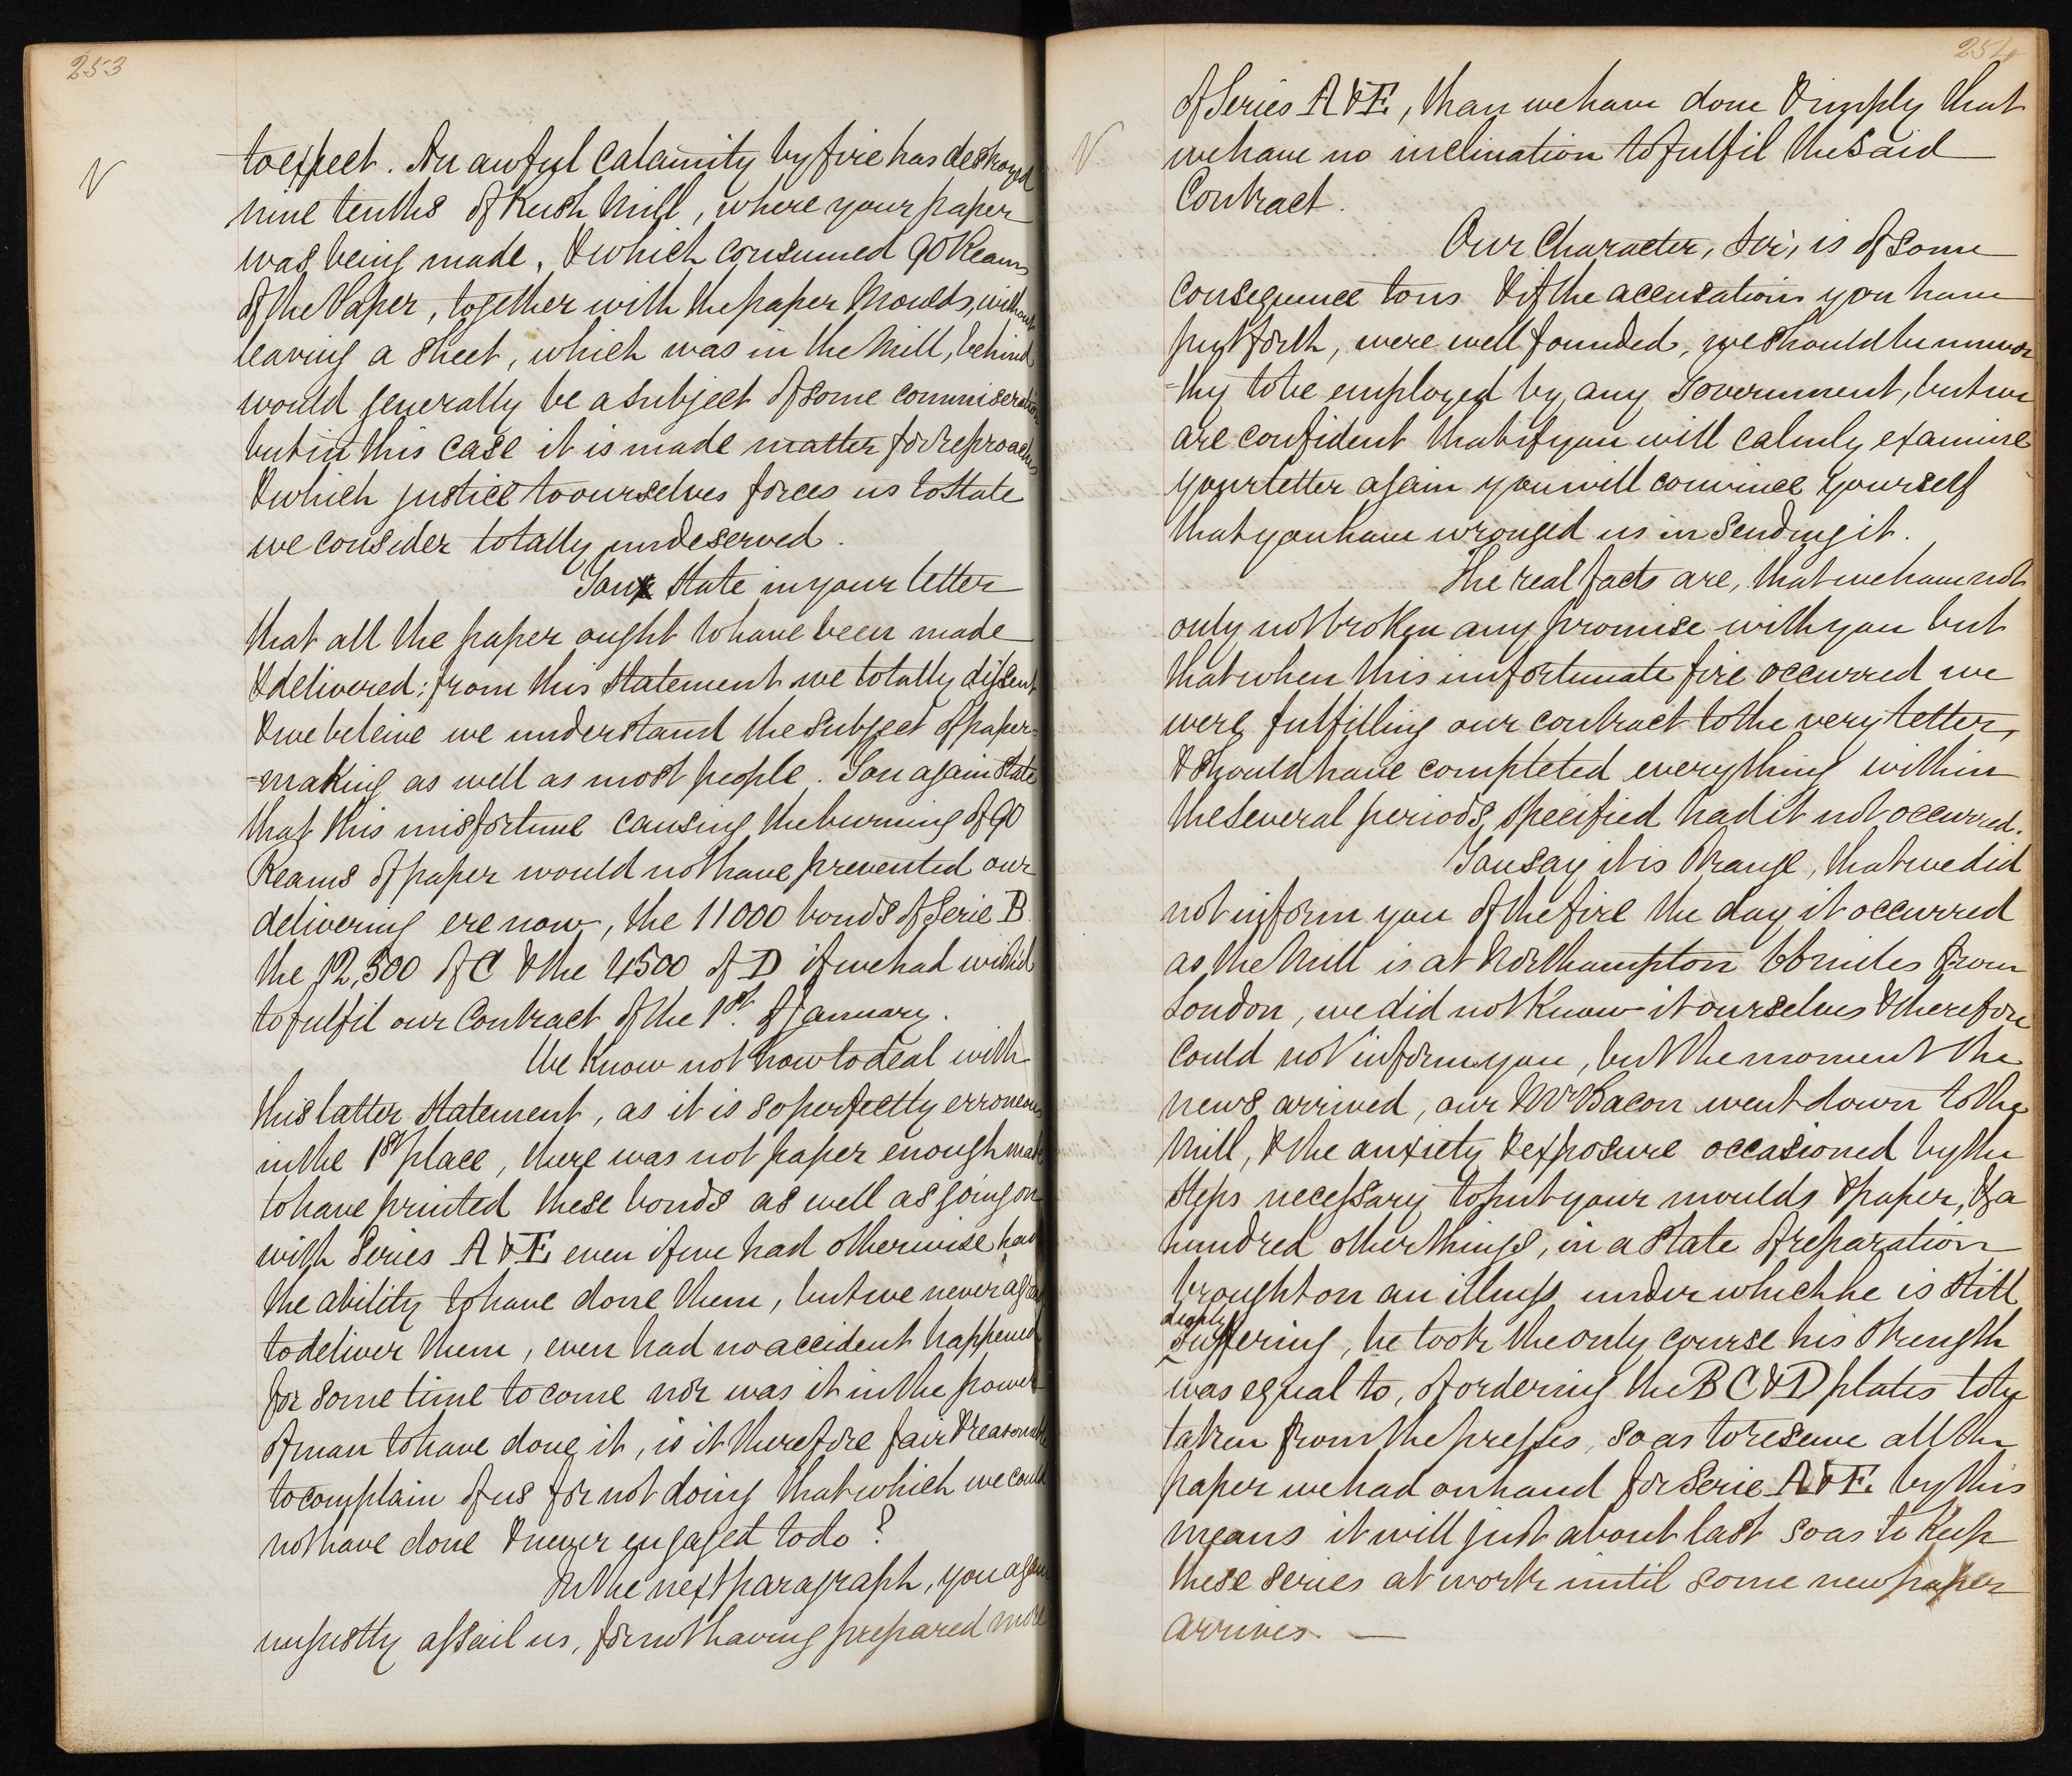 253
N
to expect. An awful calamity by fire has destroyed
nine tenths of Rush Mill, where your paper
was being made, & which consumed 90 Reams
of the Paper, together with the paper Moulds, without
leaving a sheet, which was in the Mill, behind
would generally be a subject of some commiseration
but in this case it is made matter for reproaches
& which justice to ourselves forces us to state
we consider totally undeserved.
You state in your letter
that all the paper ought to have been made
& delivered; from this statement we totally dissent
& we beleive we understand the subject of paper=
=making as well as most people. You again state
that this misfortune causing the burning of 90
Reams of paper would not have prevented our
delivering ere now, the 11000 bonds of Serie B.
the 12,500 of C & the 4500 of D if we had wished
to fulfil our Contract of the 1st. of January.
We know not how to deal with
this latter statement, as it is so perfectly erroneous
in the 1st place, there was not paper enough made
to have printed these bonds as well as going on
with Series A & E even if we had otherwise had
the ability to have done them, but we never agreed
to deliver them, even had no accident happened
for some time to come nor was it in the power
of man to have done it, is it therefore fair & reasonable
to complain of us for not doing that which we could
not have done & never engaged to do?
In the next paragraph, you again
unjustly assail us, for not having prepared more
254
N
of Series A & E, than we have done & imply that
we have no inclination to fulfil the said
Contract.
Our Character, Sir, is of some
consequence to us & if the accusations you have
put forth, were well founded, we should be unwor
=thy to be employed by any Government, but we
are confident that if you will calmly examine
your letter again you will convince yourself
that you have wronged us in sending it.
The real facts are, that we have not
only not broken any promise with you but
that when this unfortunate fire occurred we
were fulfilling our contract to the very letter,
& should have completed everything within
the several periods specified had it not occurred.
You say it is strange, that we did
not inform you of the fire the day it occurred
as the Mill is at Northampton 66 miles from
London, we did not know it ourselves & therefore
could not inform you, but the moment the
news arrived, our Mr Bacon went down to the
Mill, & the anxiety & exposure occasioned by the
steps necessary to put your moulds & paper, & a
hundred other things, in a state of reparation
brought on an illness under which he is still
deeply
suffering, he took the only course his strength
was equal to, of ordering the B C & D plates to be
taken from the presses, so as to reserve all the
paper we had on hand for Serie A & E. by this
means it will just about last so as to keep
these series at work until some new paper
arrives. —